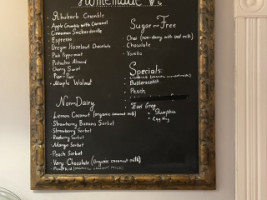 Homemade
Rhubarb Crumble
Apple Crumble with Caramel
Cinnamon Snickerdoodle
Espresso
Oregon Hazelnut Chocolate
Pink Peppermint
Pistachio Almond
Cherry Sweet
Maple Walnut
Non-Dairy
Lemon Coconut (organic coconut milk)
Strawberry Banana Sorbet
Strawberry Sorbet
Raspberry Sorbet
Mango Sorbet
Peach Sorbet
Very Chocolate (organic coconut milk)
Sugar-Free
Chai (non-dairy with coconut milk)
Chocolate
Vanilla
Specials:
Butterscotch
Peach
Earl Grey
Pumpkin
Egg Nog